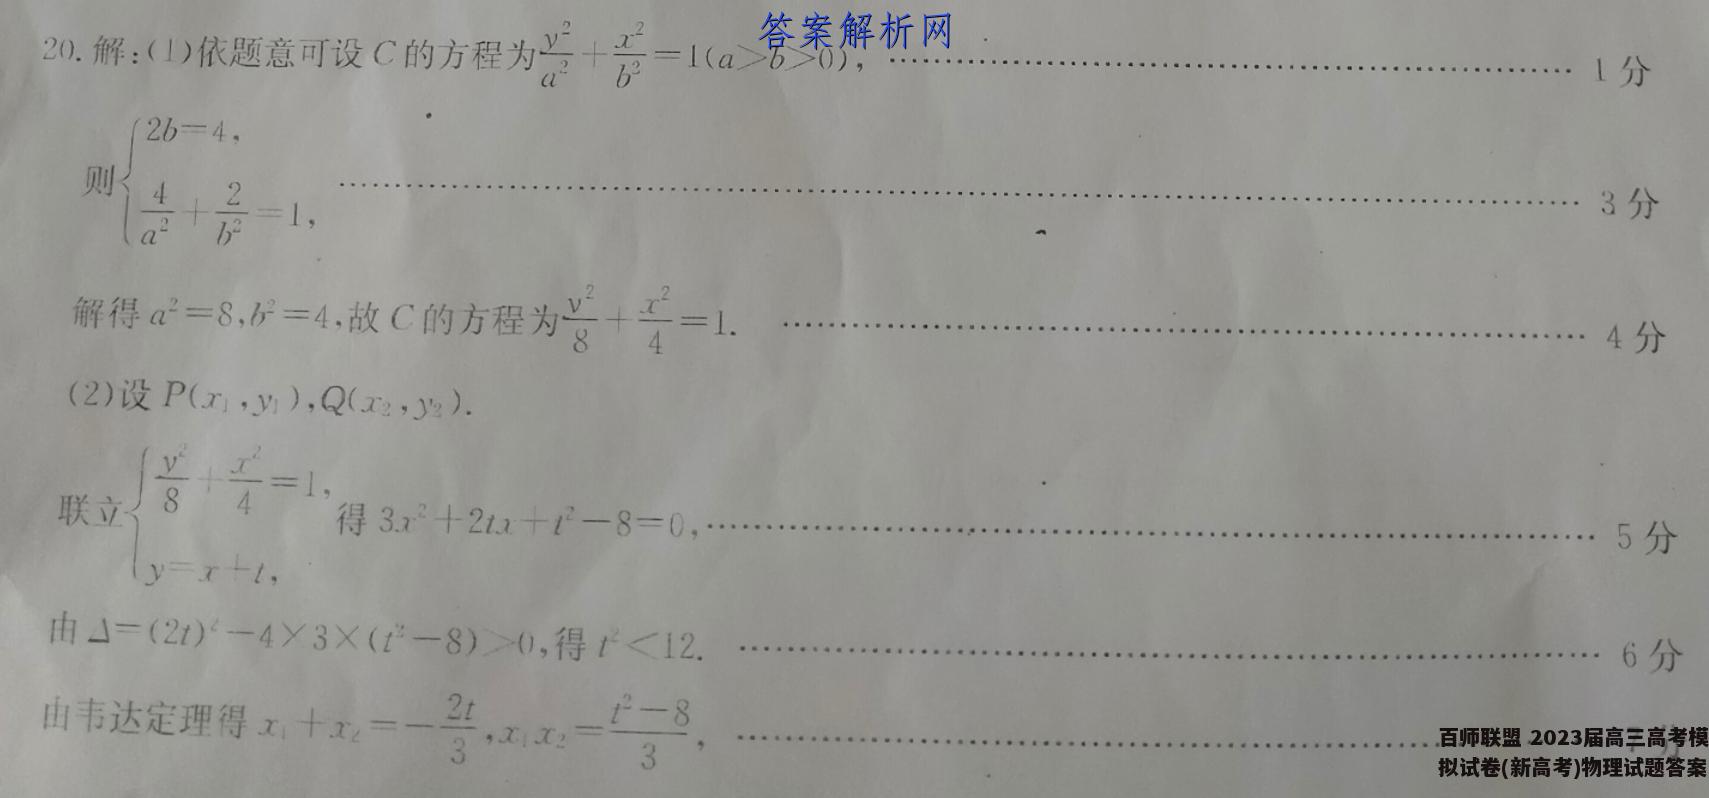 答案解析网
20. 解:(1)依题意可设 C 的方程为 y²/a² + x²/b² = 1(a>b>0), …… 1 分
则 { 2b=4, 4/a² + 2/b² = 1, …… 3 分
解得 a²=8,b²=4,故 C 的方程为 y²/8 + x²/4 = 1. …… 4 分
(2)设 P(x₁,y₁),Q(x₂,y₂).
联立 { y²/8 + x²/4 = 1, y=x+t, 得 3x²+2tx+t²-8=0, …… 5 分
由 Δ=(2t)²-4×3×(t²-8)>0,得 t²<12. …… 6 分
由韦达定理得 x₁+x₂=-2t/3,x₁x₂=(t²-8)/3, ……
百师联盟 2023届高三高考模
拟试卷(新高考)物理试题答案